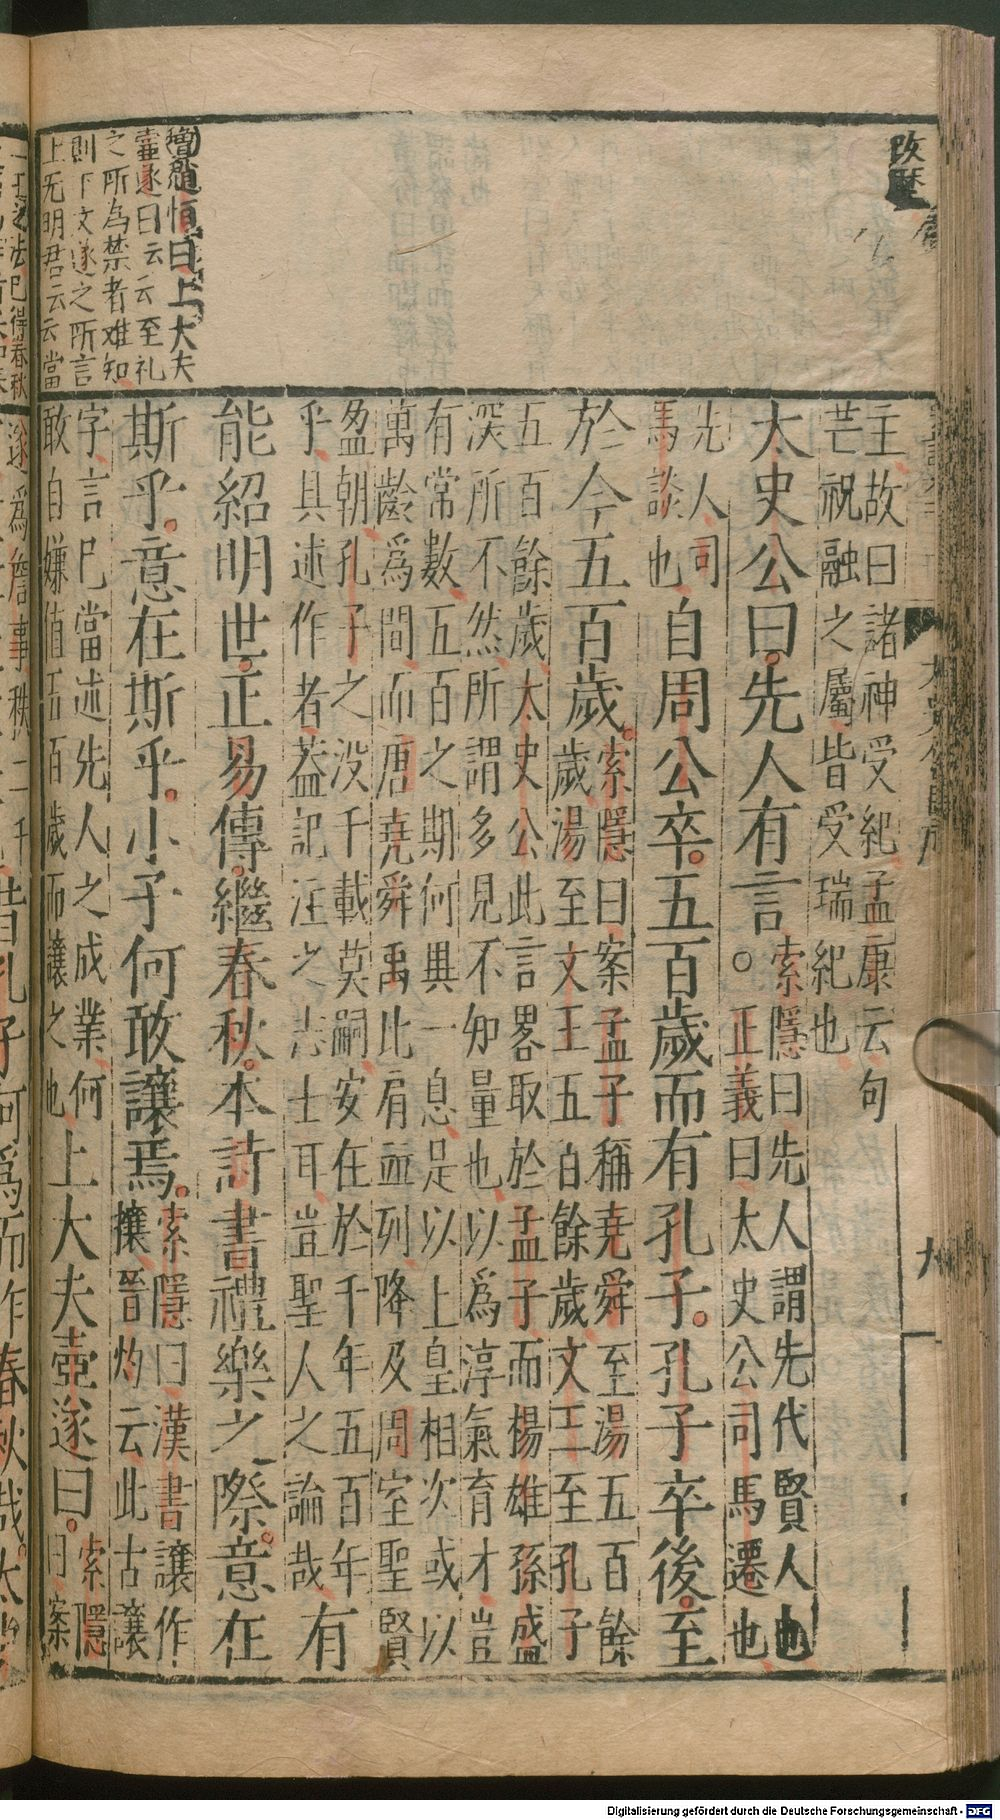 改曆
主故曰諸神受紀孟康云句
芒祝融之屬皆受瑞紀也
太史公曰先人有言。
索隱曰先人謂先代賢人也
正義曰太史公司馬遷也
先人司
馬談也
自周公卒五百歲而有孔子孔子卒後至
於今五百歲
索隱曰案孟子稱堯舜至湯五百餘
歲湯至文王五百餘歲文王至孔子
五百餘歲太史公此言畧取於孟子而楊雄孫盛
深所不然所謂多見不知量也以爲淳氣育才豈
有常數五百之期何異一息是以上皇相次或以
萬齡爲間而唐堯舜禹比肩並列降及周室聖賢
盈朝孔子之没千載莫嗣安在於千年五百年
乎具述作者蓋記注之志士耳豈聖人之論哉
有
能紹明世正易傳繼春秋本詩書禮樂之際意在
斯乎意在斯乎小子何敢讓焉
索隱曰漢書讓作
攘晉灼云此古讓
字言已當述先人之成業何
敢自嫌値五百歲而讓之也
上大夫壺遂曰
索隱
曰案
上大夫
壷遂曰云云至礼
之所為禁者难知
則下文遂之所言
上无明君云云當
太史公自序
九
遂爲詹事秩二千
昔孔子何爲而作春秋哉太
Digitalisierung gefördert durch die Deutsche Forschungsgemeinschaft - DFG